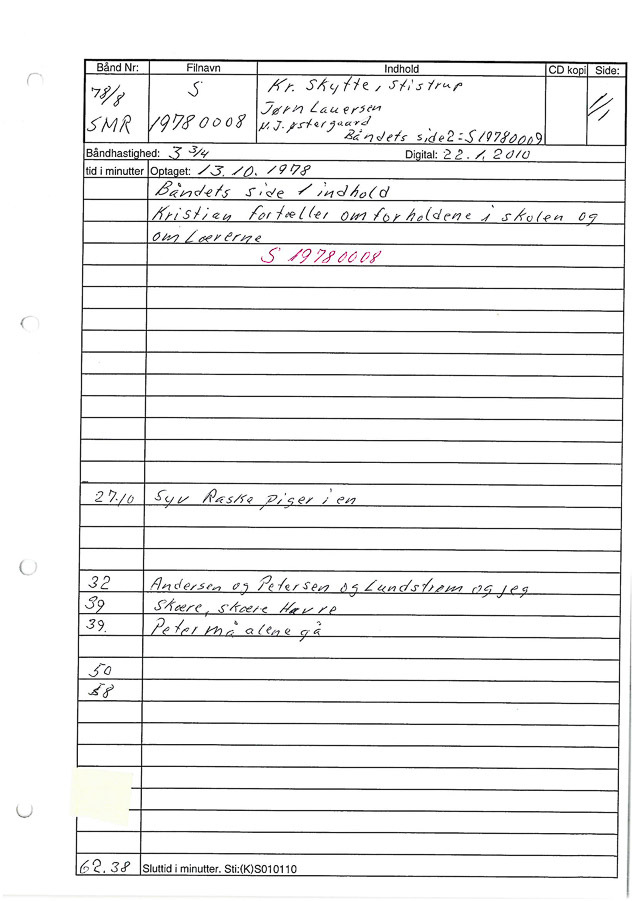 Bånd Nr: Filnavn Indhold CD kopi Side:
78/8 S Kr. Skytte, Stistrup
Jørn Lauersen
SMR 19780008 v. J. Østergaard
Båndets side 2 = S19780009
Båndhastighed: 3 3/4 Digital: 22.1.2010
tid i minutter Optaget: 13.10.1978
Båndets side 1 indhold
Kristian fortæller om forholdene i skolen og
om Lærerne
S 19780008
27.10 Syv Raske piger i en
32 Andersen og Petersen og Lundstrøm og jeg
39 Skære, skære Havre
39. Peter må alene gå
50
58
62.38 Sluttid i minutter. Sti:(K)S010110